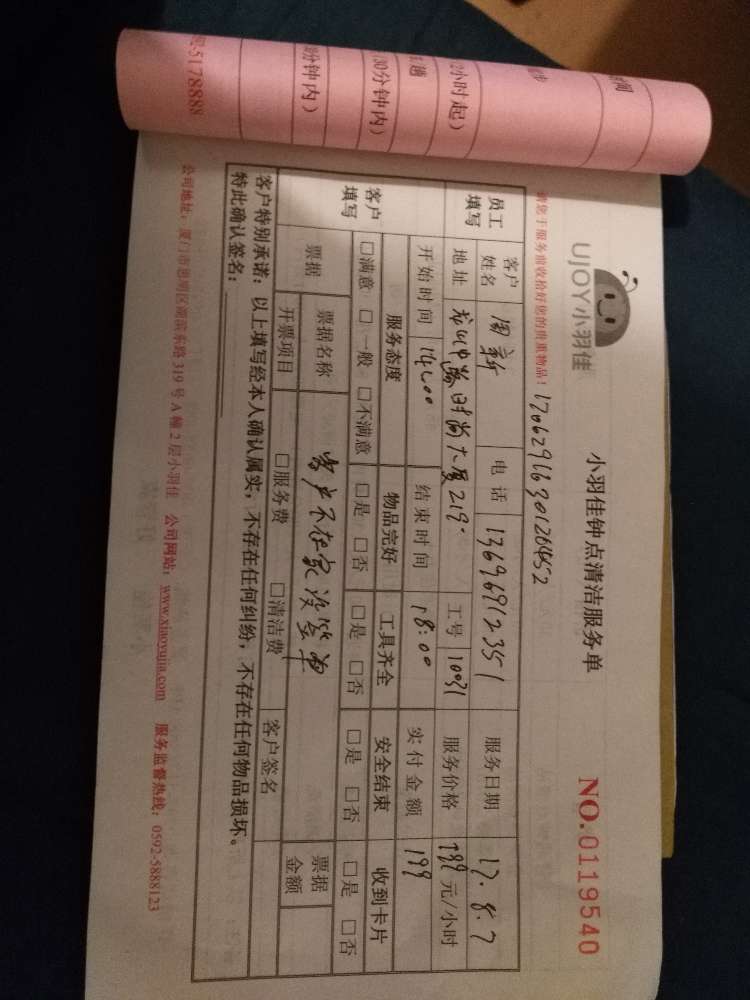 时间
2小时起）
（30分钟内）
分钟内）
5178888
UJOY小羽佳
小羽佳钟点清洁服务单
NO.0119540
请您于服务前收拾好您的贵重物品！
员工填写
客户姓名
周
电话
13696912351
服务日期
17.8.7
地址
时尚大厦219
工号
10031
服务价格
元/小时
开始时间
14:00
结束时间
18:00
实付金额
199
客户填写
服务态度
物品完好
工具齐全
安全结束
收到卡片
□满意 □一般 □不满意
□是 □否
□是 □否
□是 □否
□是 □否
票据
票据名称
客户不在家没签单
票据金额
开票项目
□服务费 □清洁费
客户签名
客户特别承诺：以上填写经本人确认属实，不存在任何纠纷，不存在任何物品损坏。
特此确认签名：
公司地址：厦门市思明区湖滨东路319号A幢2层小羽佳 公司网站：www.xiaoyujia.com 服务监督热线：0592-5888123